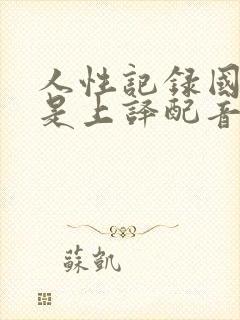 人性記録國
是上譯配音
蘇凱